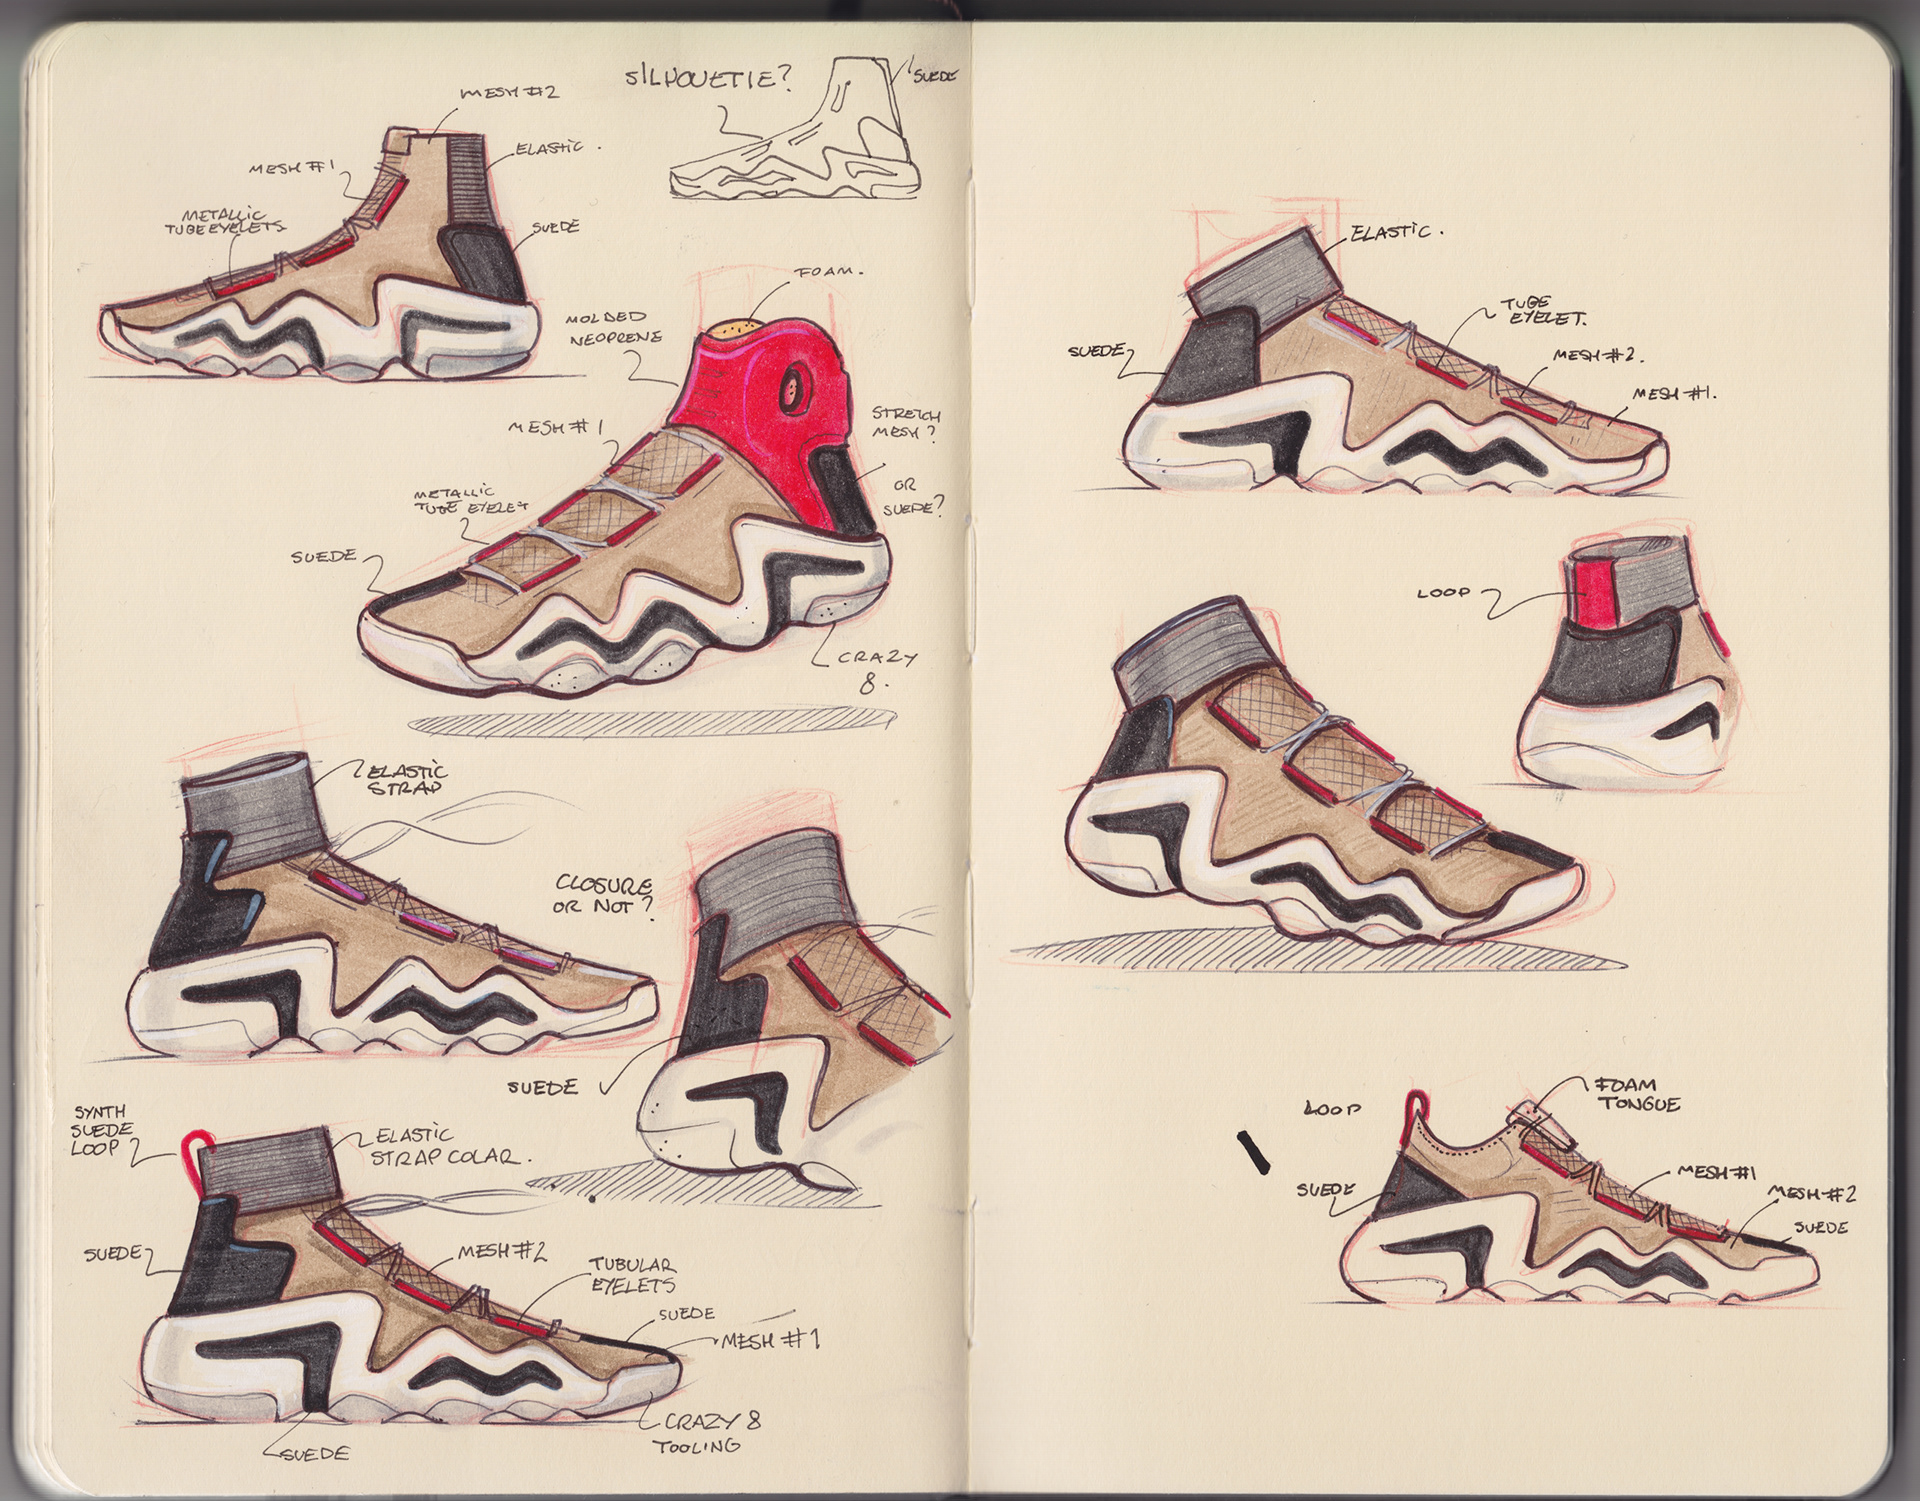 SILHOUETTE?
SUEDE
MESH #2
ELASTIC.
MESH #1
METALLIC
TUBE EYELETS.
SUEDE
FOAM.
MOLDED
NEOPRENE
STRETCH
MESH?
OR
SUEDE?
MESH #1
METALLIC
TUBE EYELET
SUEDE
CRAZY
8.
ELASTIC
STRAP
CLOSURE
OR NOT?
SUEDE
SYNTH
SUEDE
LOOP
ELASTIC
STRAP COLAR.
SUEDE
MESH #2
TUBULAR
EYELETS
SUEDE
MESH #1
CRAZY 8
TOOLING
SUEDE
ELASTIC.
TUBE
EYELET.
SUEDE
MESH #2.
MESH #1.
LOOP
FOAM
TONGUE
LOOP
MESH #1
SUEDE
MESH #2
SUEDE